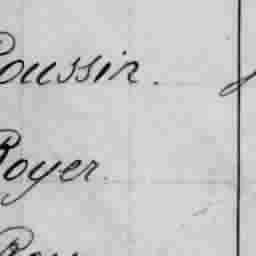 Poussin.
Royer.